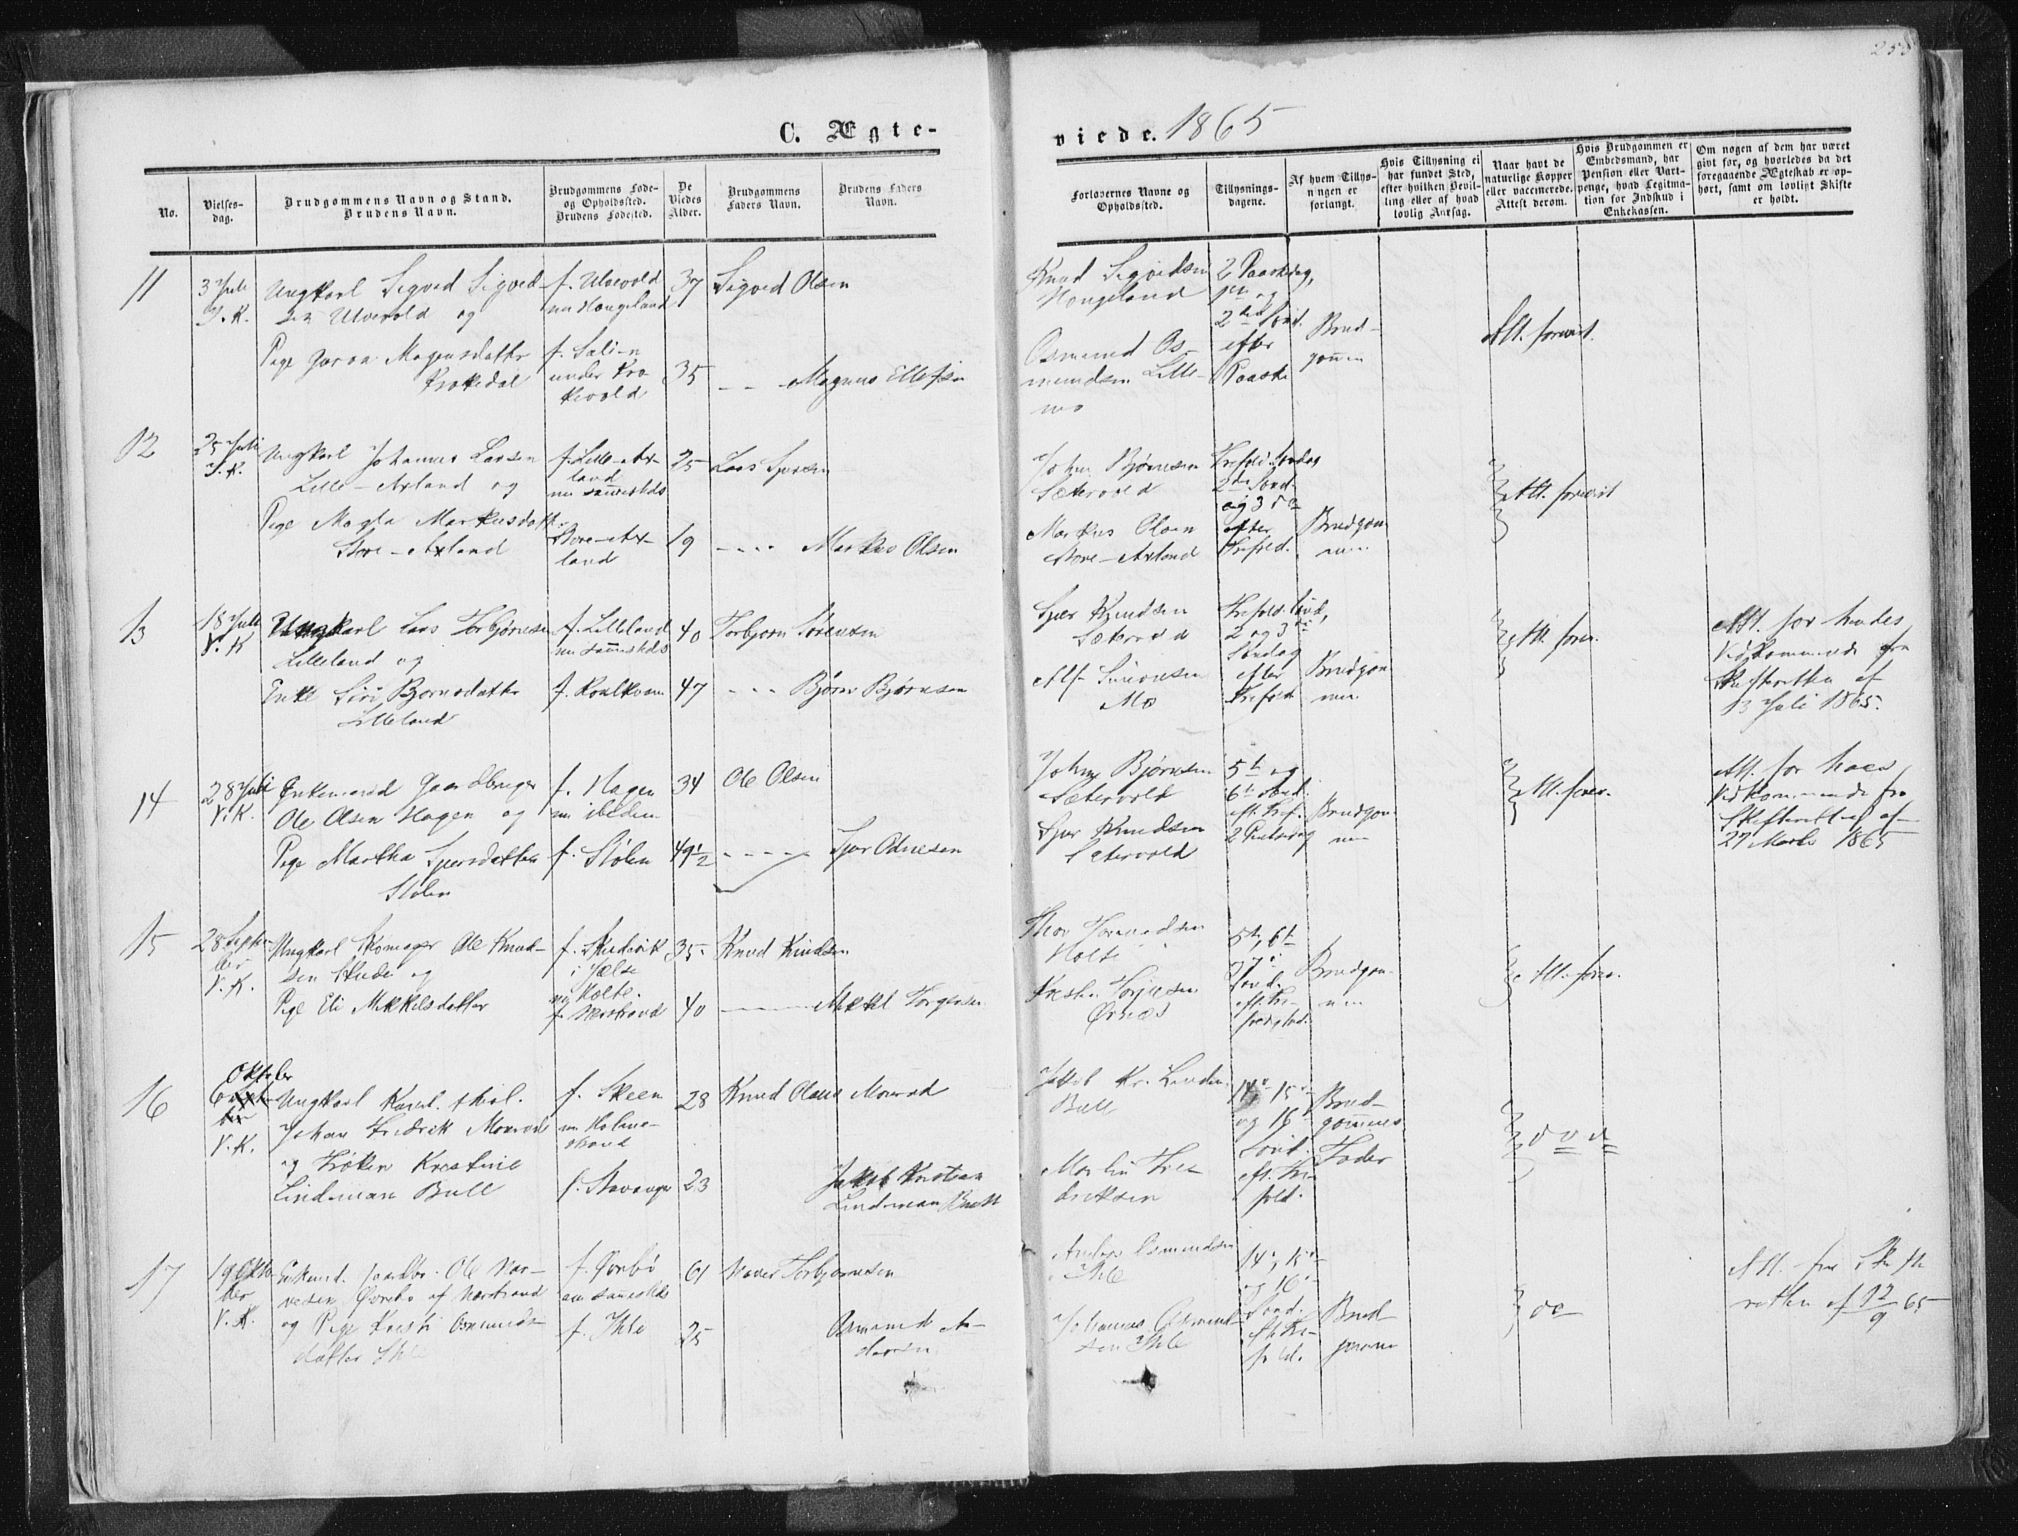 258
C. Ægte-
viede. 1865
No.
Vielses-
dag.
Brudgommens Navn og Stand.
Brudens Navn.
Brudgommens Føde-
og Opholdssted.
Brudens Fødested.
De
Viedes
Alder.
Brudgommens
Faders Navn.
Brudens Faders
Navn.
Forlovernes Navne og
Opholdssted.
Tillysnings-
dagene.
Af hvem Tillys-
ningen er
forlangt.
Hvis Tillysning ei
har fundet Sted,
efter hvilken Bevil-
ling eller af hvad
lovlig Aarsag.
Naar havt de
naturlige Kopper
eller vaccinerede.
Attest derom.
Hvis Brudgommen er
Embedsmand, har
Pension eller Vart-
penge, hvad Legitima-
tion for Indskud i
Enkekassen.
Om nogen af dem har været
givt før, og hvorledes da det
foregaaende Ægteskab er op-
hørt, samt om lovligt Skifte
er holdt.
11
3 Juli
Ungkarl Sigved Sigved-
sen Ulvevold og
Pige Magnusdatter
Krokedal
f. Ulvevold
nu Haugeland
f. Salien
under Kro-
kevold
37
35
Sigved Olsen
Magnus Ellefsen
Knud Sigvedsen
Haugeland
Osmund Os-
mundsen Lille-
mo
2 Paaskedag,
1ste og
2den Sønd.
efter
Paaske
Brud-
gommen
Att. forevist.
12
25 Juli
Ungkarl Johannes Larsen
Lille-Axland og
Pige Magla Markusdatt.
Store-Axland
f. Lille-Ax-
land
nu sammesteds
Store-Ax-
land
25
19
Lars Sjursen
Markus Olsen
John Bjørnsen
Sætervold
Markus Olsen
Store-Axland
2den Sønd.
og 3de
efter
Trefold.
Brudgom-
men
Att. forevist
13
18 Juli
V. K.
Ungkarl Lars Torbjørnsen
Lilleland og
Enke Siri Bjørnsdatter
Lilleland
f. Lilleland
nu sammesteds
f. Roalkvam
40
47
Torbjørn Sørensen
Bjørn Bjørnsen
Sjur Knudsen
Sætervold
Alf Simonsen
Mo
2 og 3die
Søndag
efter
Trefold
Brudgom-
men
Att. forev.
Att. for hendes
Vedkommende fra
Skifteretten af
13 Juli 1865.
14
28 Juli
V. K.
Enkemand Gaardbruger
Ole Olsen Hagen og
Pige Martha Sjursdatter
Stølen
f. Hagen
nu ibidem
f. Stølen
34
49½
Ole Olsen
Sjur Odnesen
John Bjørnsen
Sætervold
Sjur Knudsen
Sætervold
5te og
6te Sønd.
eft. Tref.
Brudgom-
men
Att. forev.
Att. for hans
Vedkommende fra
Skifteretten af
27 Marts 1865
15
28 Septem-
ber
V. K.
Ungkarl Skomager Ole Knud-
sen og
Pige Eli Mikkelsdatter
i Jelse
nu Holte
f. Nærstrand
35
40
Knud Knudsen
Mikkel Torgersen
Thor
Holte
5te, 6te
og 7de
Sønd.
eft. Tre-
Brudgom-
men
Att. forev.
16
Oktober
6
V. K.
Ungkarl theol.
Johan Fredrik Monrad
og Frøken Kristine
Lindeman Bull
f. Skeen
nu Holme-
strand
f. Stavanger
28
23
Knud Olaus Monrad
Jakob Kristian
Lindeman Bull
Jakob Kr. Lindem.
Bull
Martin Fre-
driksen
14de, 15de
og 16de
Sønd.
eft. Tre-
fold.
Brud-
gommens
Fader
17
19 Okto-
ber
V. K.
Enkemd. Gaardbr. Ole Nar-
vesen Øvrebø af Nærstrand
og Pige Kristi Osmunds-
datter Ihle
f. Øvrebø
nu sammesteds
f. Ihle
61
25
Naver Torbjørnsen
Osmund An-
dersen
Anders Osmundsen
Ihle
Johannes Osmund-
sen Ihle
14de, 15de
og 16de
Sønd.
eft. Tre-
fold.
Brud-
gommen
Att. fra Skifte-
retten af 12/9 65